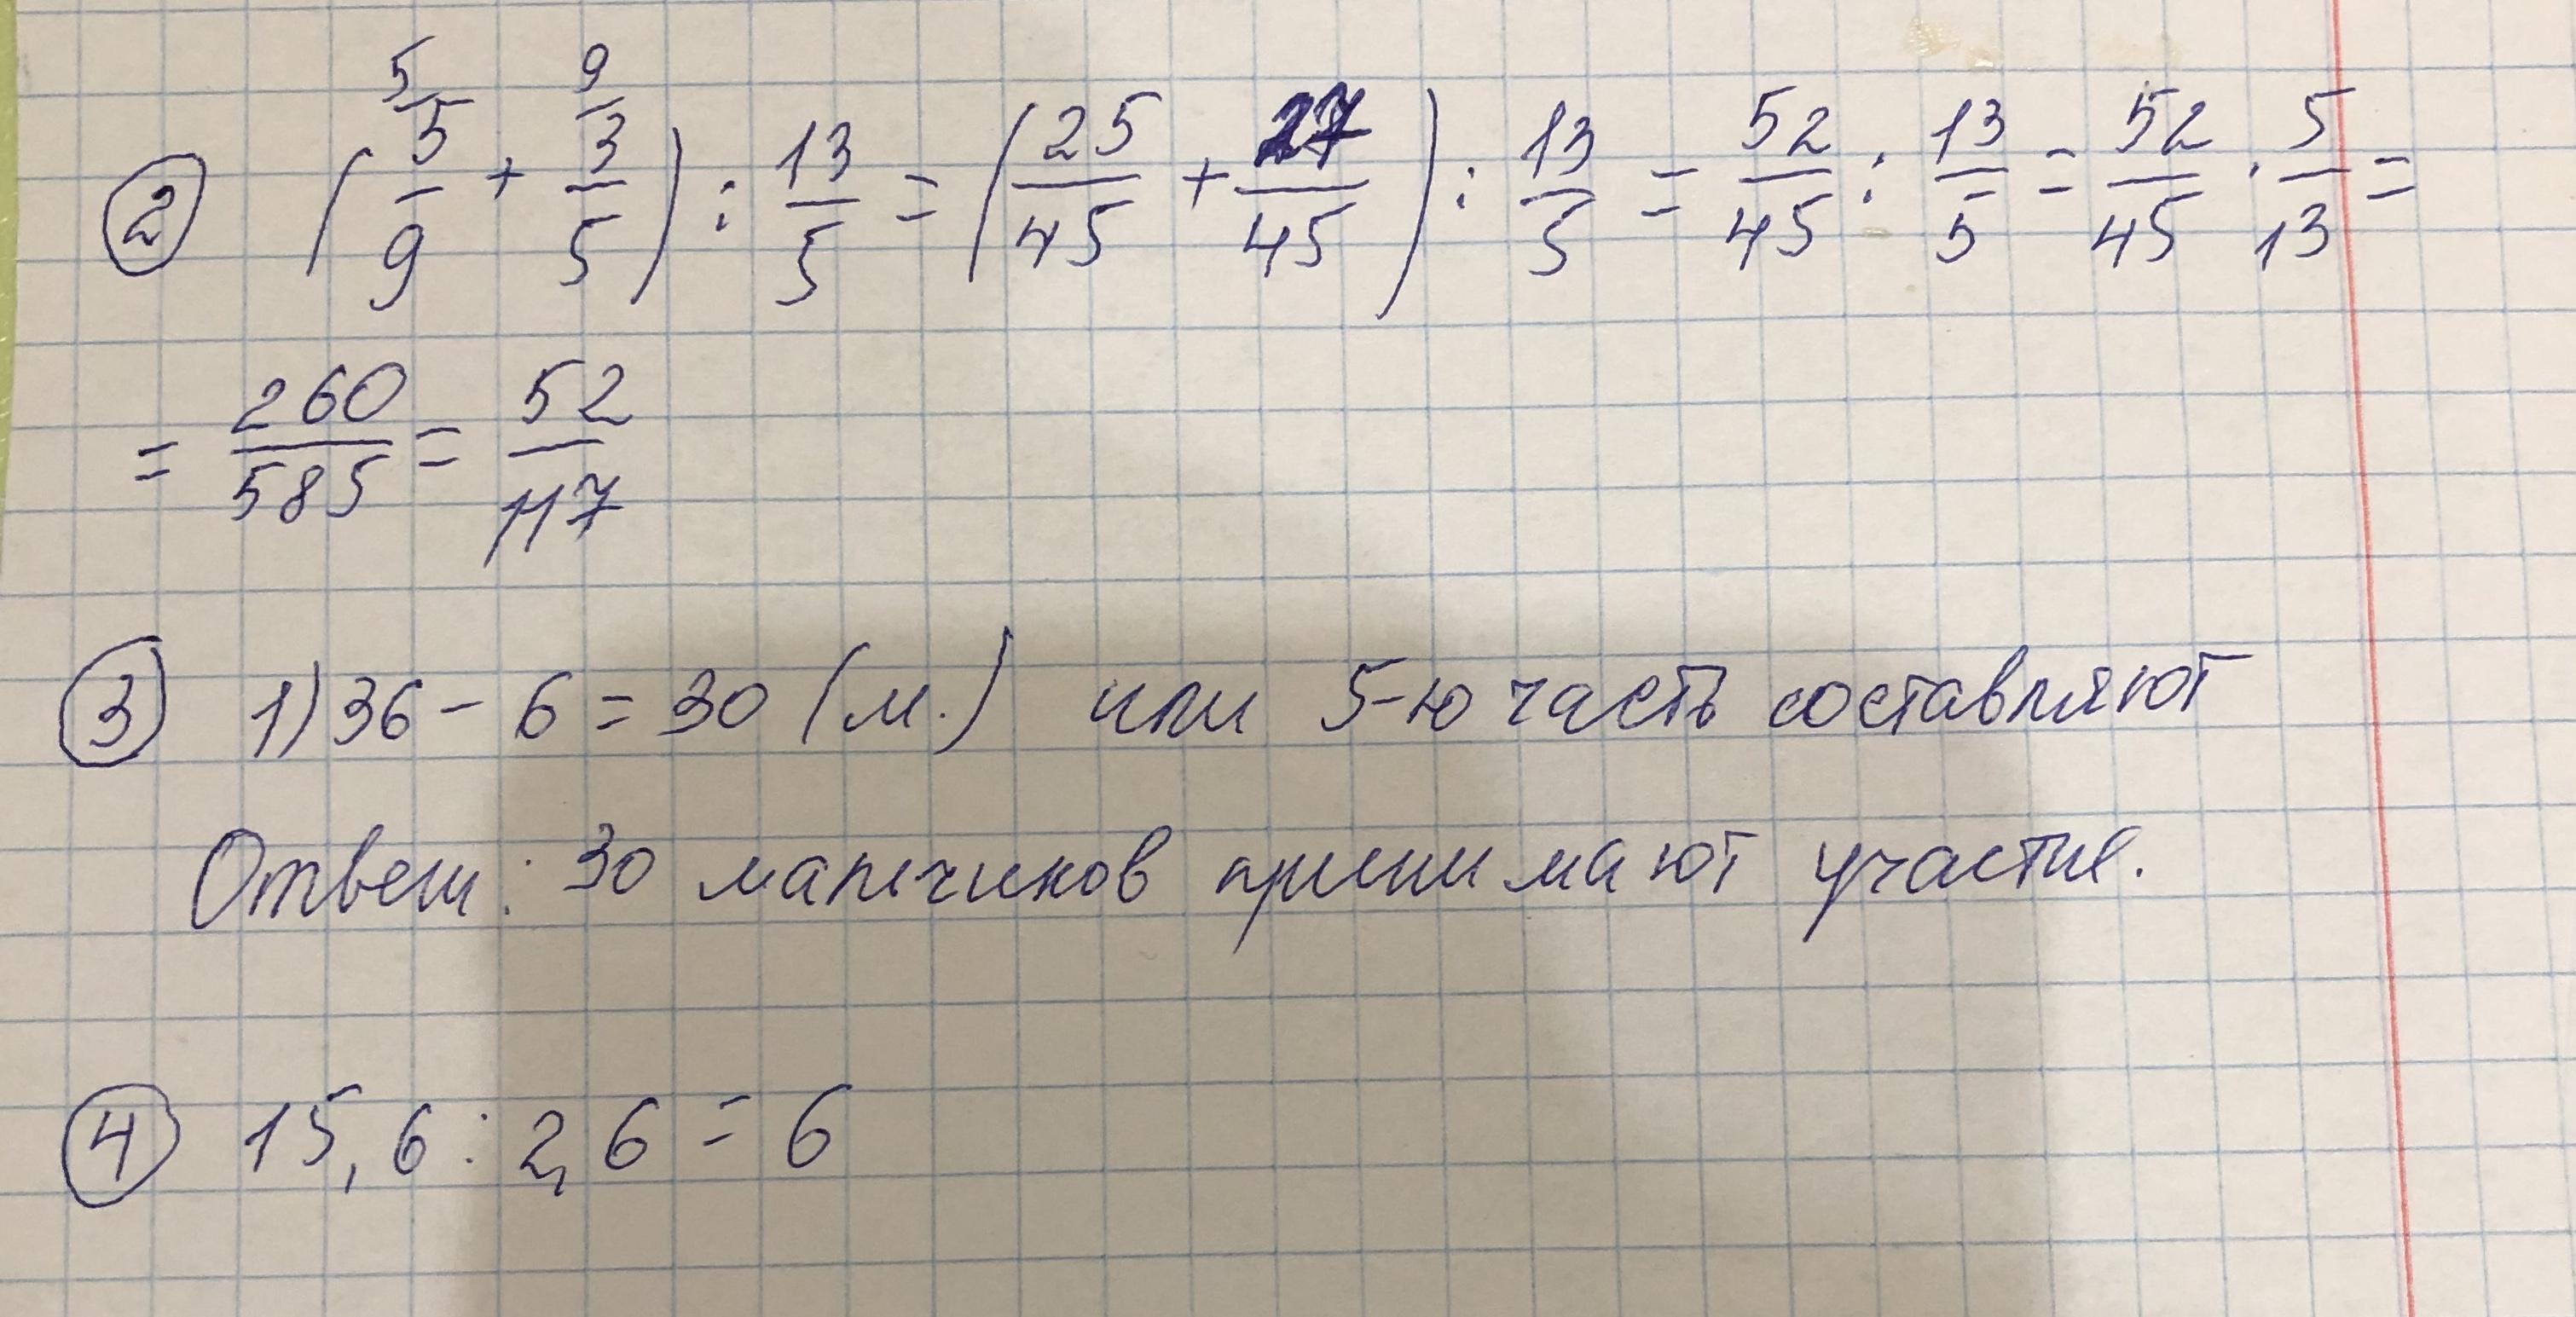 ② (5/9 + 3/5) : 13/5 = (25/45 + 27/45) : 13/5 = 52/45 : 13/5 = 52/45 · 5/13 =
= 260/585 = 52/117
③ 1) 36 - 6 = 30 (м.) или 5-ю часть составляют
Ответ: 30 мальчиков принимают участие.
④ 15,6 : 2,6 = 6